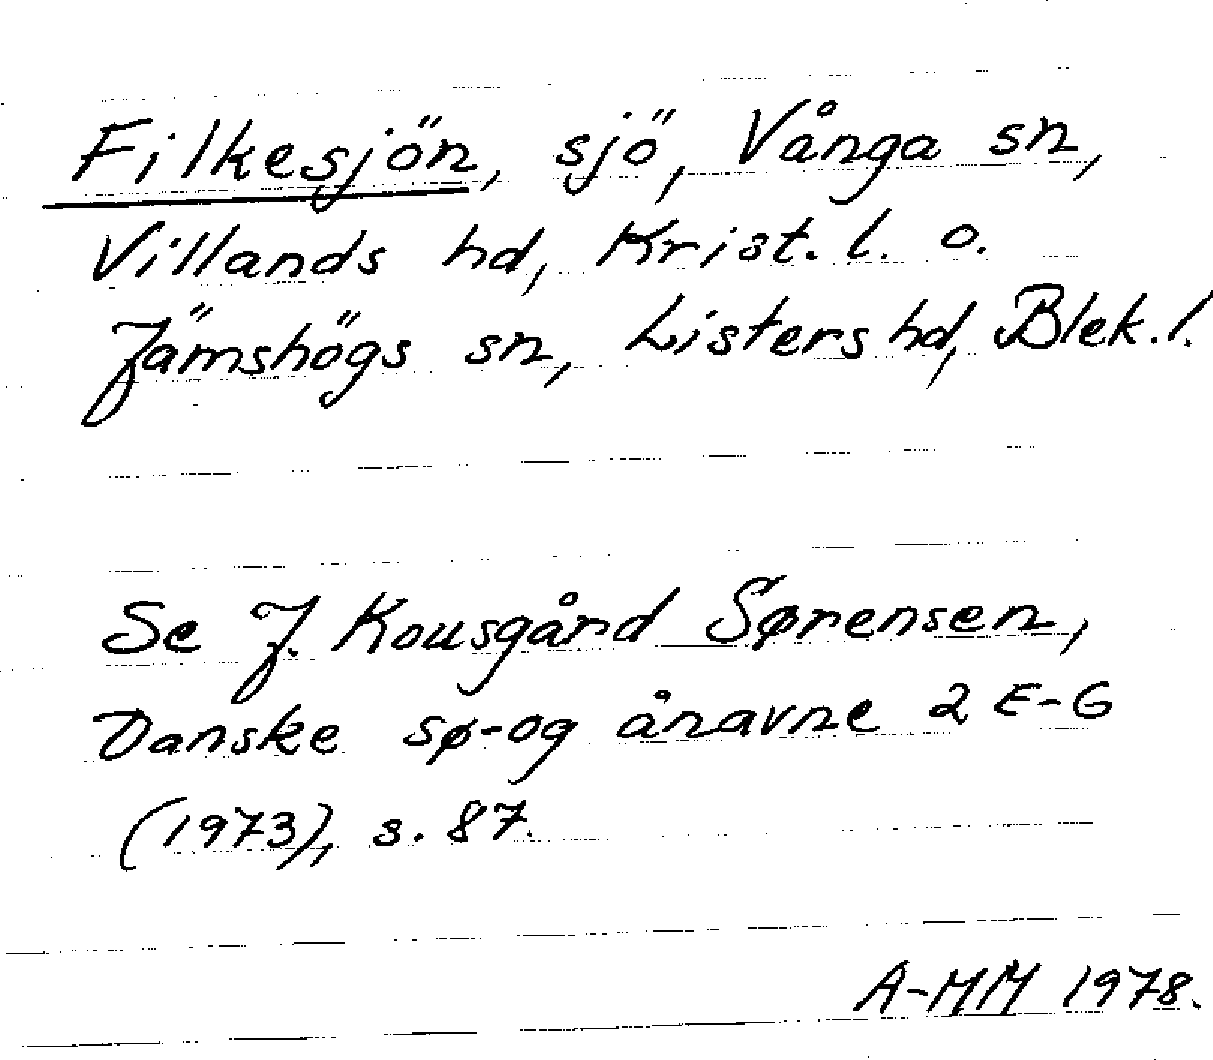 Filkesjön, sjö, Vånga sn,
Villands hd, Krist. l. o.
Jämshögs sn, Listers hd, Blek. l.
Se J. Kousgård Sørensen,
Danske sø-og ånavne 2 E-G
(1973), s. 87.
A-MM 1978.